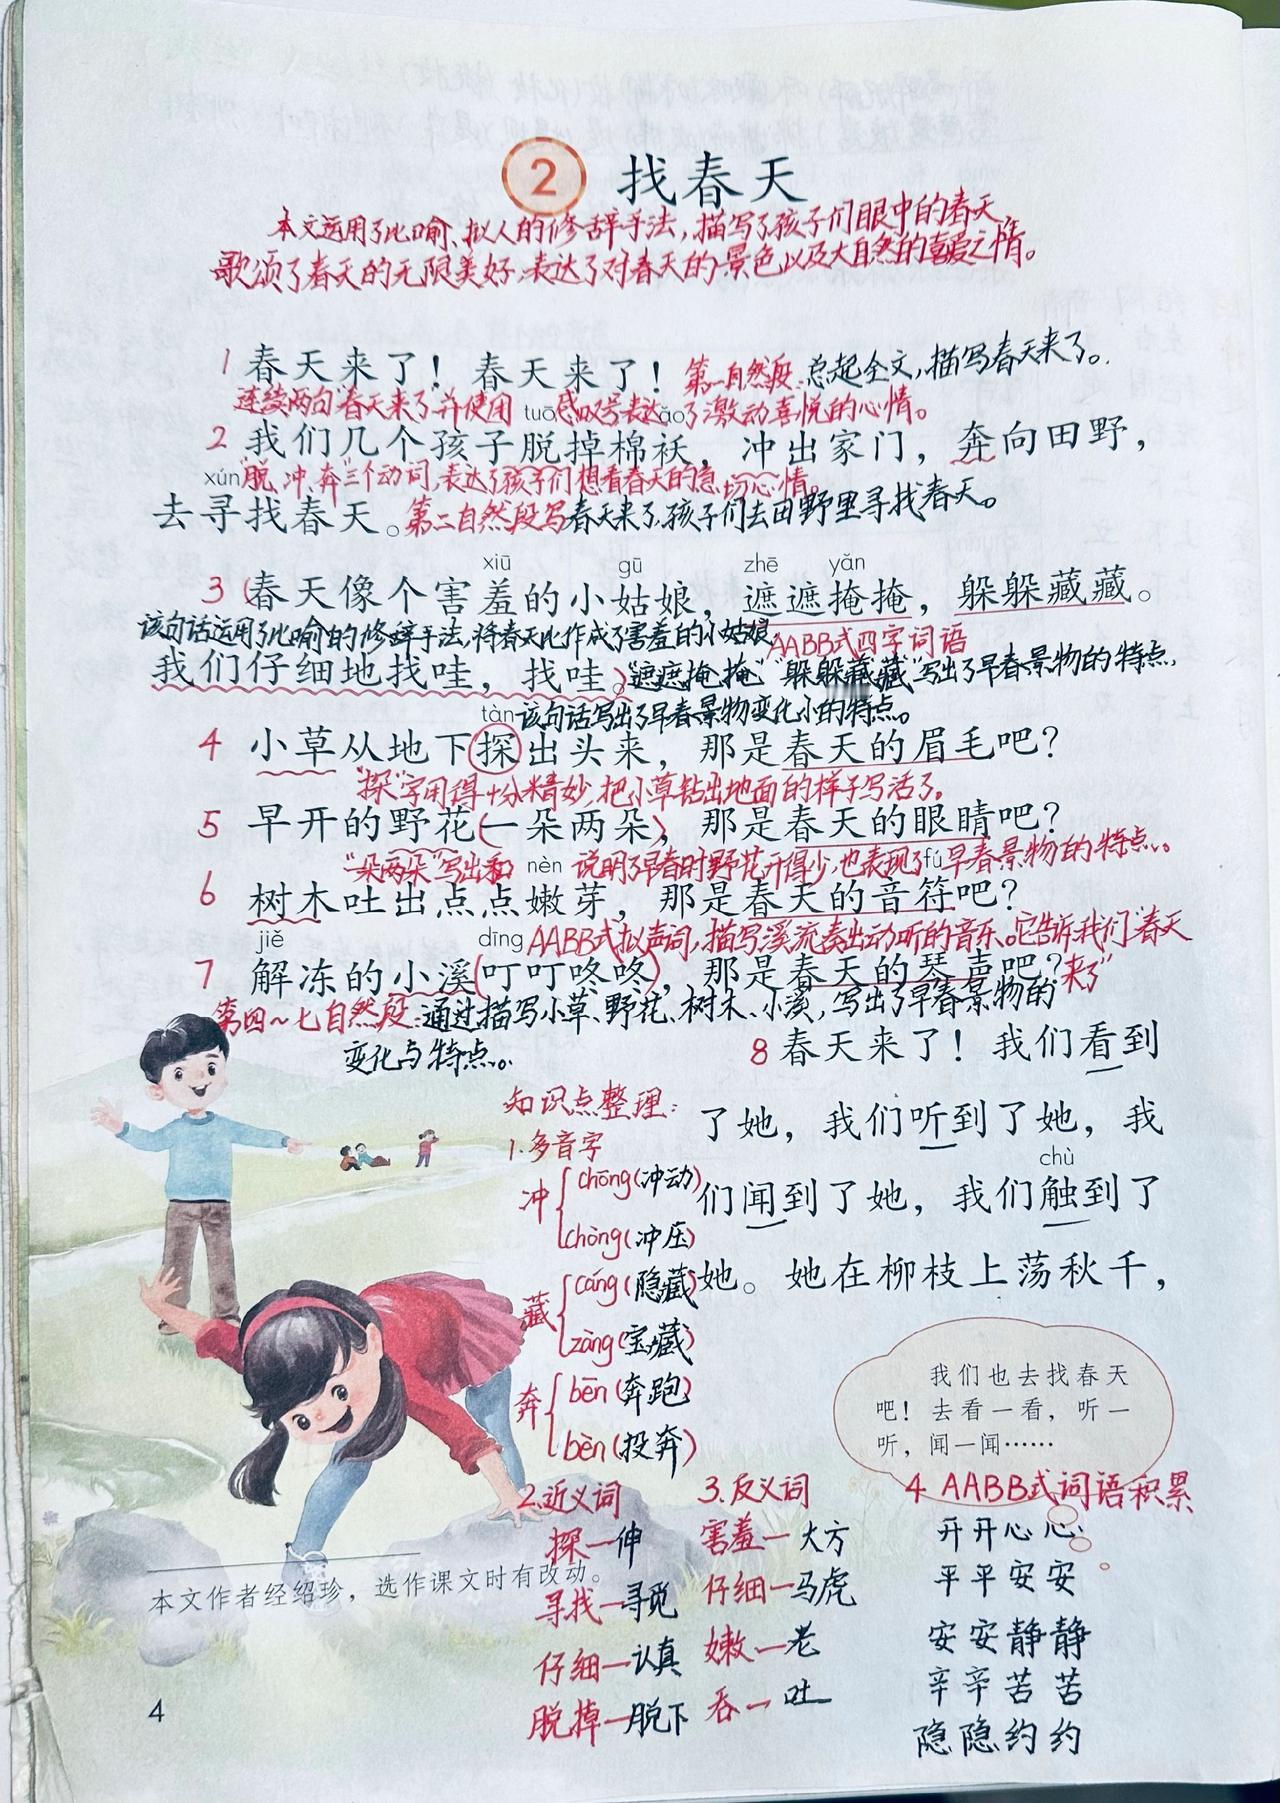 2 找春天
本文运用了比喻、拟人的修辞手法,描写了孩子们眼中的春天
歌颂了春天的无限美好,表达了对春天的景色以及大自然的喜爱之情。
1 春天来了！春天来了！第一自然段:总起全文,描写春天来了。
连续两句"春天来了"并使用感叹号表达了激动喜悦的心情。
tuō ǎo
2 我们几个孩子脱掉棉袄，冲出家门，奔向田野，
xún "脱、冲、奔"三个动词,表达了孩子们想看春天的急切心情。
去寻找春天。第二自然段写春天来了,孩子们去田野里寻找春天。
xiū gū zhē yǎn
3 春天像个害羞的小姑娘，遮遮掩掩，躲躲藏藏。
该句话运用了比喻的修辞手法,将春天比作成了害羞的小姑娘, AABB式四字词语
我们仔细地找哇，找哇。"遮遮掩掩""躲躲藏藏"写出了早春景物的特点,
tàn 该句话写出了早春景物变化小的特点。
4 小草从地下探出头来，那是春天的眉毛吧？
"探"字用得十分精妙,把小草钻出地面的样子写活了。
5 早开的野花(一朵两朵)，那是春天的眼睛吧？
"一朵两朵"写出和 nèn 说明了早春时野花开得少,也表现了 fú 早春景物的特点。
6 树木吐出点点嫩芽，那是春天的音符吧？
jiě dīng AABB式拟声词,描写溪流奏出动听的音乐。它告诉我们"春天
7 解冻的小溪(叮叮咚咚)，那是春天的琴声吧？来了"
第四~七自然段:通过描写小草、野花、树木、小溪,写出了早春景物的
变化与特点。
8 春天来了！我们看到
了她，我们听到了她，我
chù
们闻到了她，我们触到了
她。她在柳枝上荡秋千，
知识点整理:
1.多音字
冲 chōng(冲动)
chòng(冲压)
藏 cáng(隐藏)
zàng(宝藏)
奔 bēn(奔跑)
bèn(投奔)
我们也去找春天
吧！去看一看，听一
听，闻一闻……
2.近义词
探—伸
寻找—寻觅
仔细—认真
脱掉—脱下
3.反义词
害羞—大方
仔细—马虎
嫩—老
吞—吐
4 AABB式词语积累
开开心心
平平安安
安安静静
辛辛苦苦
隐隐约约
本文作者经绍珍，选作课文时有改动。
4